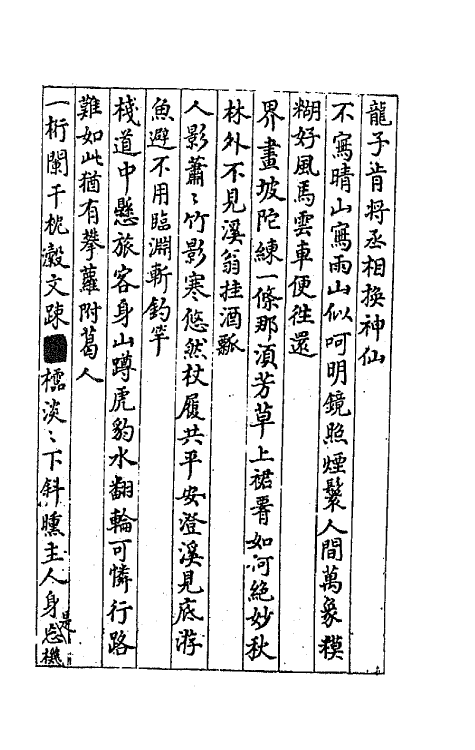 龍子肯将丞相換神仙
不寫晴山寫雨山似呵明鏡照煙鬟人間萬象模
糊好風馬雲車便往還
界畫坡陀練一條那須芳草上裙腰如何絶妙秋
林外不見溪翁挂酒瓢
人影蕭〻竹影寒悠然杖履共平安澄溪見底游
魚避不用臨淵斬釣竿
棧道中懸旅客身山蹲虎豹水翻輪可憐行路
難如此猶有攀蘿附葛人
一桁闌干枕瀫文踈櫺淡〻下斜曛主人身是忘機